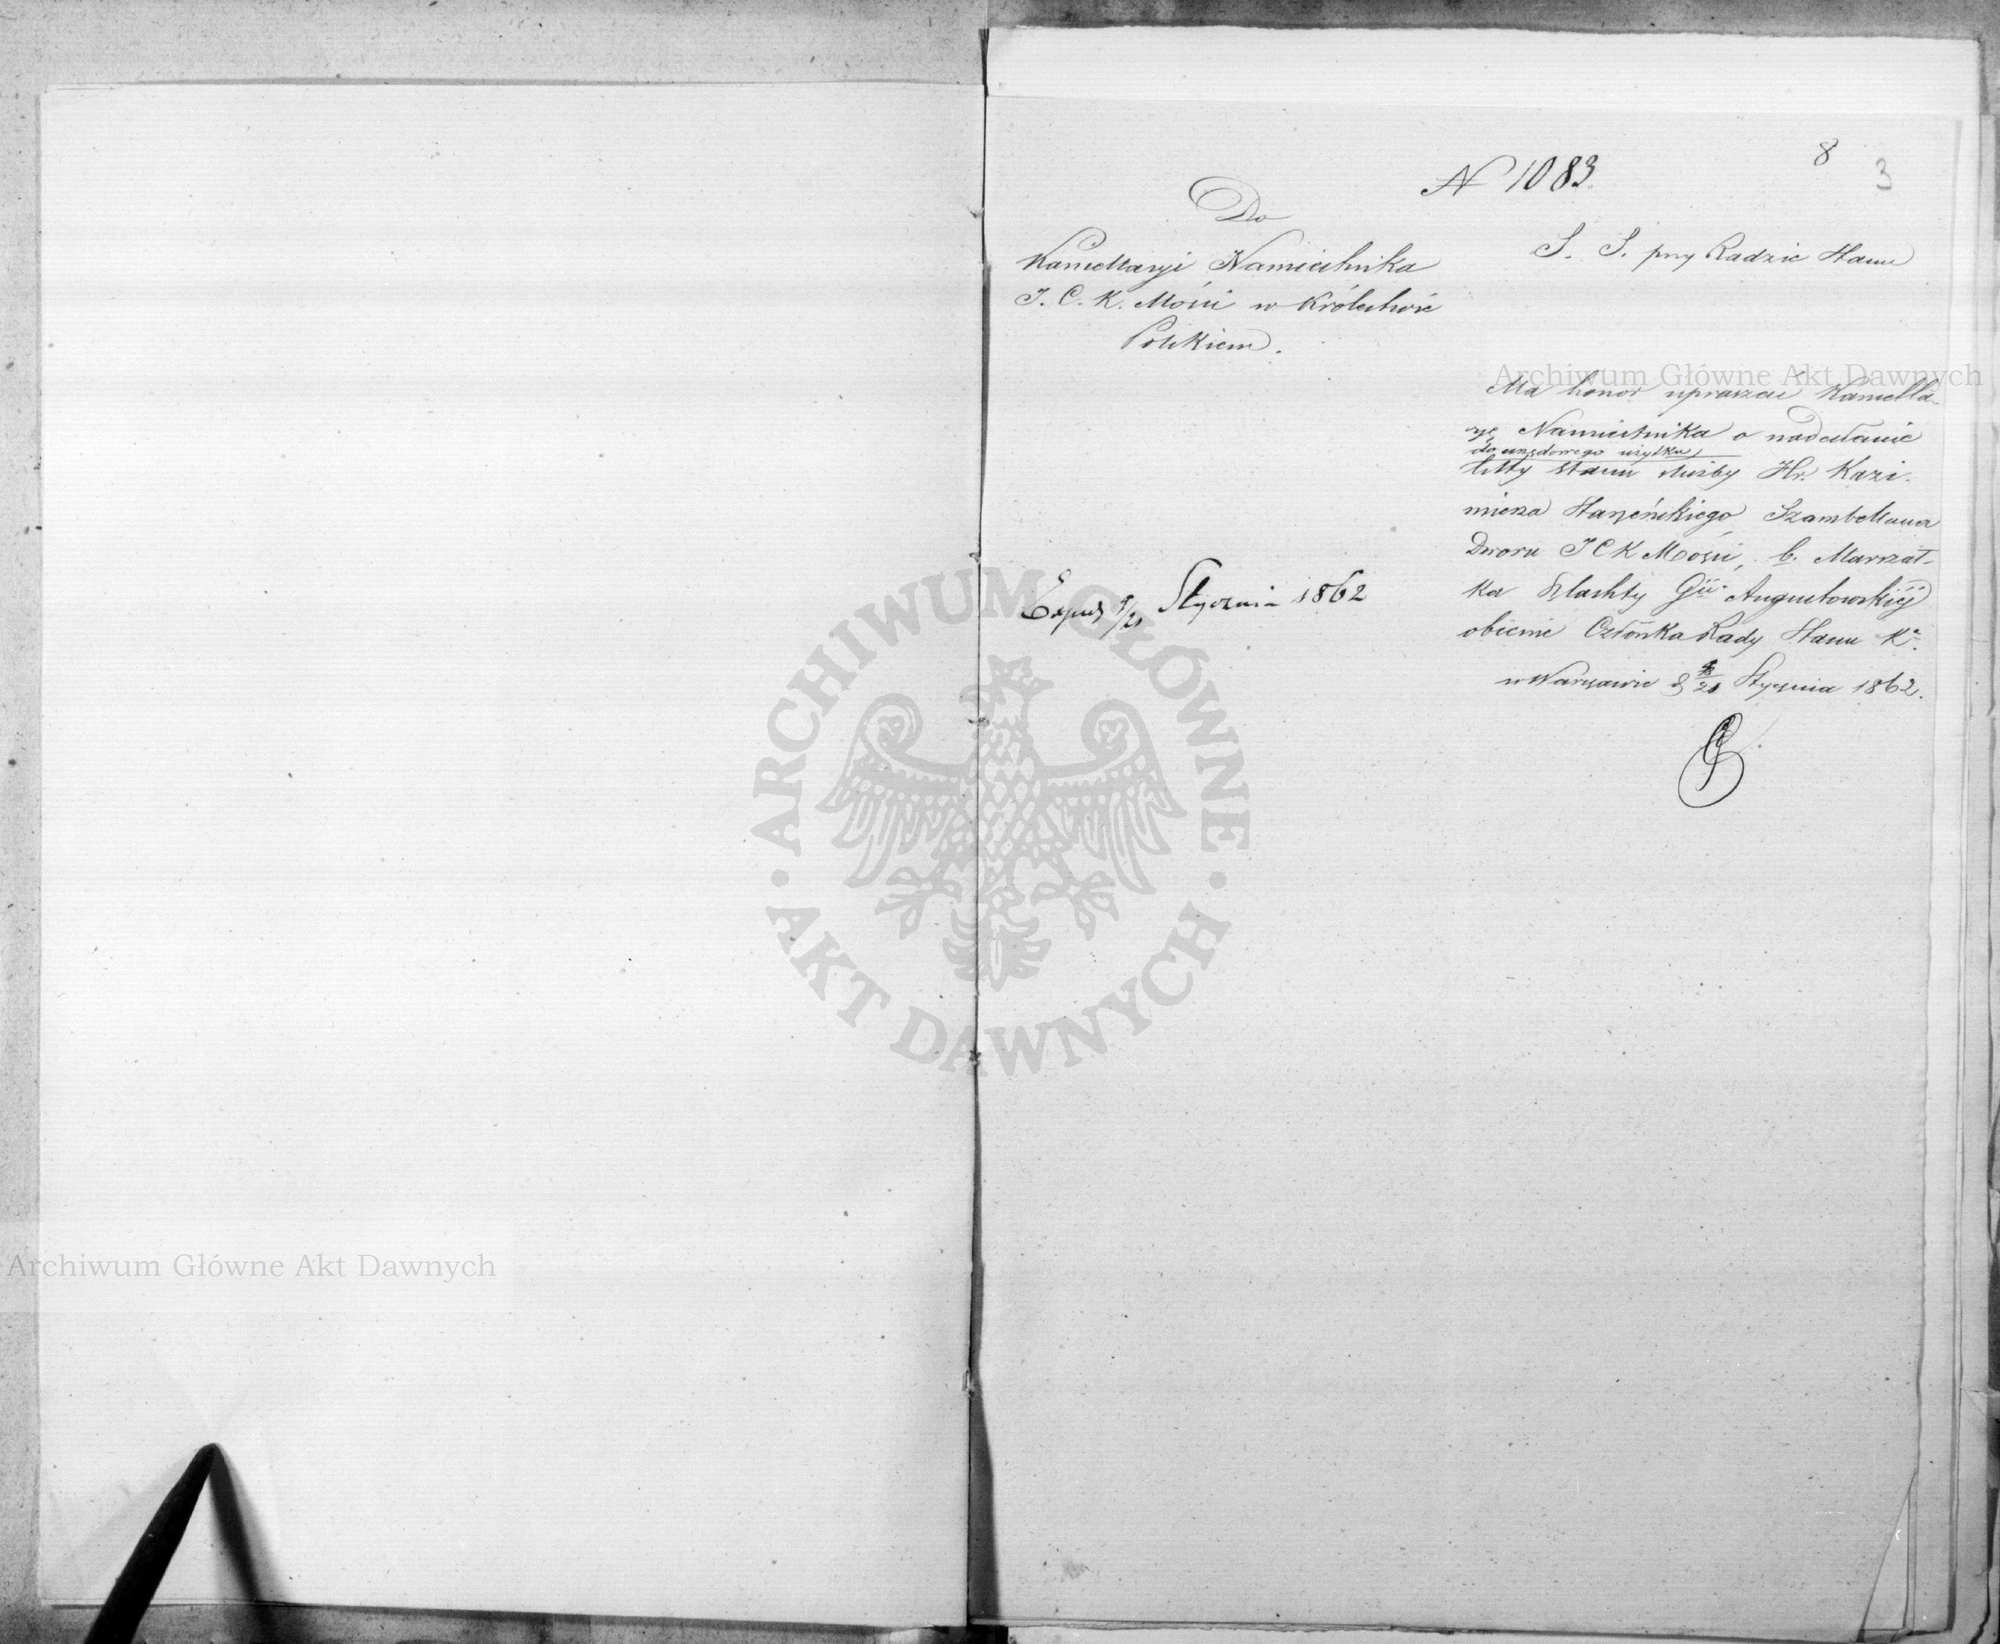 8
3
N 1083.
Do
Kancellaryi Namiestnika
J. C. K. Mości w Królestwie
Polskiem.
S. S. przy Radzie Stanu
Ma honor upraszać Kancella-
ryę Namiestnika o nadesłanie
do urzędowego użytku,
listy stanu służby Hr. Kazi-
mierza Starzeńskiego Szambellana
Dworu J C K Mości, b. Marszał-
ka Szlachty Gii Augustowskiéj
obecnie Członka Rady Stanu K.
w Warszawie d 9/21 Stycznia 1862.
Exped 9/21 Stycznia 1862
Archiwum Główne Akt Dawnych
ARCHIWUM GŁÓWNE
AKT DAWNYCH
Archiwum Główne Akt Dawnych